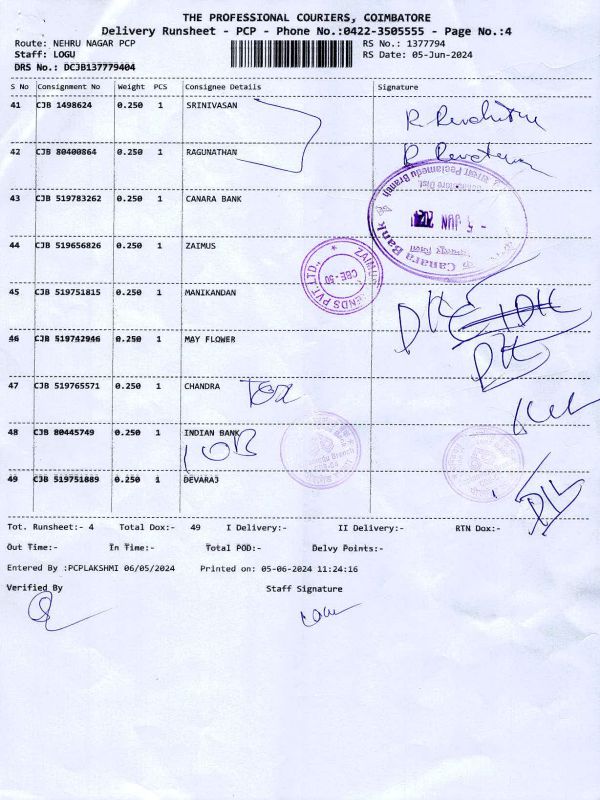 THE PROFESSIONAL COURIERS, COIMBATORE
Delivery Runsheet - PCP - Phone No.:0422-3505555 - Page No.:4
Route: NEHRU NAGAR PCP RS No.: 1377794
Staff: LOGU RS Date: 05-Jun-2024
DRS No.: DCJB137779404
S No Consignment No Weight PCS Consignee Details Signature
41 CJB 1498624 0.250 1 SRINIVASAN
42 CJB 80400864 0.250 1 RAGUNATHAN
43 CJB 519783262 0.250 1 CANARA BANK
Canara Bank
5 JUN
44 CJB 519656826 0.250 1 ZAIMUS
CBE
PVT. LTD.
45 CJB 519751815 0.250 1 MANIKANDAN
46 CJB 519742946 0.250 1 MAY FLOWER
47 CJB 519765571 0.250 1 CHANDRA
48 CJB 80445749 0.250 1 INDIAN BANK
IOB
49 CJB 519751889 0.250 1 DEVARAJ
Tot. Runsheet:- 4 Total Dox:- 49 I Delivery:- II Delivery:- RTN Dox:-
Out Time:- In Time:- Total POD:- Delvy Points:-
Entered By :PCPLAKSHMI 06/05/2024 Printed on: 05-06-2024 11:24:16
Verified By Staff Signature